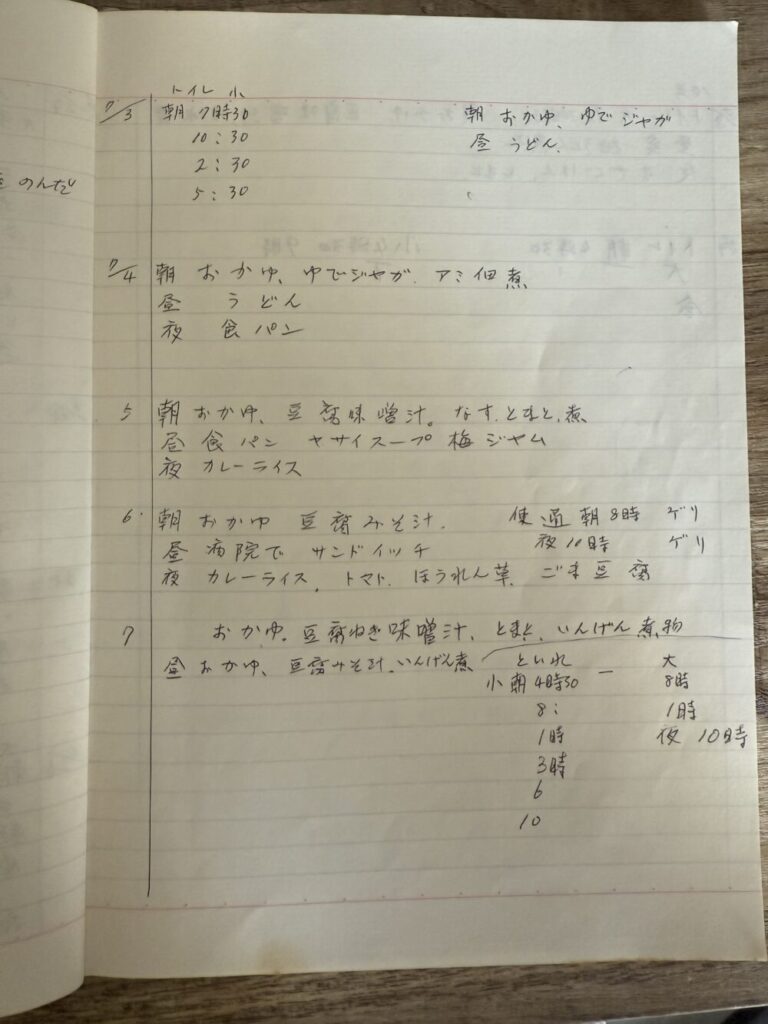 のんだ
トイレ 小
7/3 朝 7時30 朝 おかゆ、ゆでジャガ
10:30 昼 うどん.
2:30
5:30
7/4 朝 おかゆ、ゆでジャガ. アミ佃煮
昼 うどん
夜 食パン
5 朝 おかゆ、豆腐味噌汁。なす、とまと、煮
昼 食パン ヤサイスープ 梅ジャム
夜 カレーライス
6. 朝 おかゆ 豆腐みそ汁. 便通 朝8時 ゲリ
昼 病院で サンドイッチ 夜10時 ゲリ
夜 カレーライス, トマト、ほうれん草、ごま豆腐
7 おかゆ。豆腐ねぎ味噌汁、とまと、いんげん煮物
昼 おかゆ、豆腐みそ汁、いんげん煮 といれ 大
小 朝4時30 — 8時
8: 1時
1時 夜 10時
3時
6
10